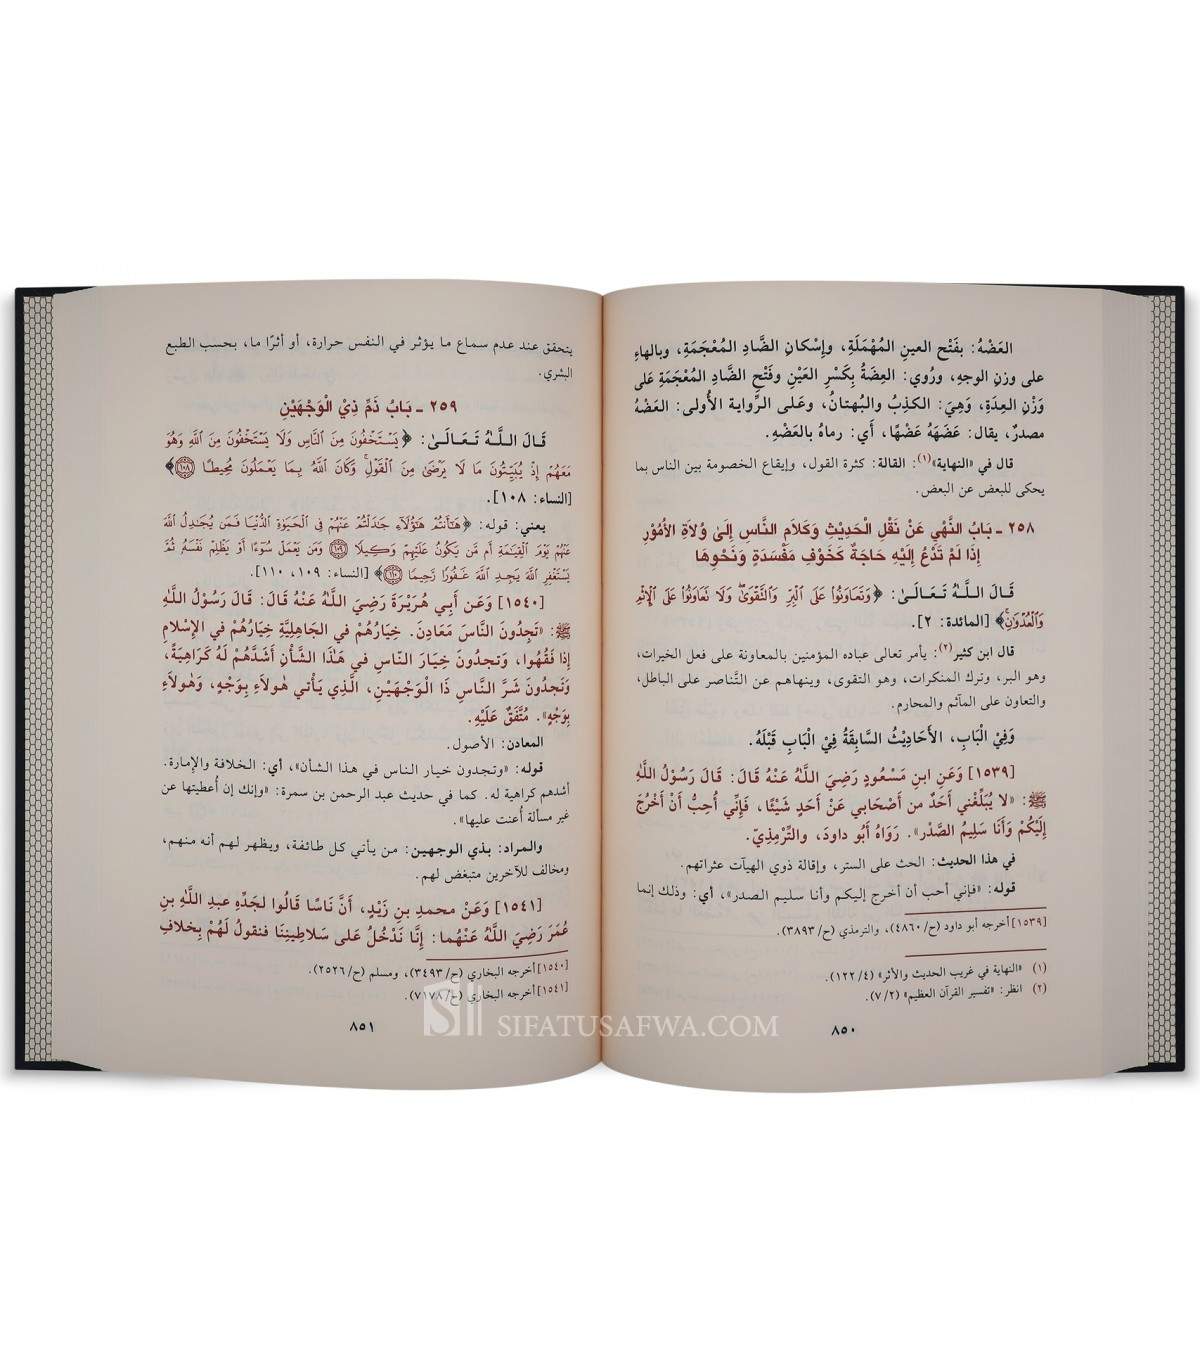 العَضْهُ: بفَتْحِ العينِ المُهْمَلَةِ، وإسْكانِ الضَّادِ المُعْجَمَةِ، وبالهاءِ
على وزنِ الوجهِ، ورُوي: العِضَةُ بِكَسْرِ العَيْنِ وفَتْحِ الضَّادِ المُعْجَمَةِ عَلى
وَزْنِ العِدَةِ، وَهِيَ: الكذِبُ والبُهتانُ، وعَلى الرِّواية الأُولى: العَضْهُ
مصدرٌ، يقال: عَضَهَهُ عَضْهًا، أَي: رماهُ بالعَضْهِ.
قال في «النهاية»(١): القالة: كثرة القول، وإيقاع الخصومة بين الناس بما
يحكى للبعض عن البعض.
٢٥٨ ـ بَابُ النَّهْيِ عَنْ نَقْلِ الْحَدِيْثِ وَكَلاَمِ النَّاسِ إِلَى وُلاَةِ الأُمُوْرِ
إِذَا لَمْ تَدْعُ إِلَيْهِ حَاجَةٌ كَخَوْفِ مَفْسَدَةٍ وَنَحْوِهَا
قَالَ اللَّهُ تَعَالَىٰ: ﴿وَتَعَاوَنُوا۟ عَلَى ٱلْبِرِّ وَٱلتَّقْوَىٰ وَلَا تَعَاوَنُوا۟ عَلَى ٱلْإِثْمِ
وَٱلْعُدْوَٰنِ﴾ [المائدة: ٢].
قال ابن كثير(٢): يأمر تعالى عباده المؤمنين بالمعاونة على فعل الخيرات،
وهو البر، وترك المنكرات، وهو التقوى، وينهاهم عن التَّناصر على الباطل،
والتعاون على المآثم والمحارم.
وَفِيْ الْبَابِ، الأَحَادِيْثُ السَّابِقَةُ فِيْ الْبَابِ قَبْلَهُ.
[١٥٣٩] وَعَن ابنِ مَسْعُودٍ رَضِيَ اللَّهُ عَنْهُ قَالَ: قَالَ رَسُوْلُ اللَّهِ
ﷺ: «لا يُبَلِّغْني أَحَدٌ من أَصْحَابي عَنْ أَحَدٍ شَيْئًا، فَإِنِّي أُحِبُّ أَنْ أَخْرُجَ
إِلَيْكُمْ وَأَنَا سَلِيمُ الصَّدْرِ». رَوَاهُ أَبُو داودَ، والتِّرْمِذِيّ.
في هذا الحديث: الحث على الستر، وإقالة ذوي الهيآت عثراتهم.
قوله: «فإني أحب أن أخرج إليكم وأنا سليم الصدر»، أي: وذلك إنما
[١٥٣٩] أخرجه أبو داود (ح/٤٨٦٠)، والترمذي (ح/٣٨٩٣).
(١) «النهاية في غريب الحديث والأثر» (٤/ ١٢٢).
(٢) انظر: «تفسير القرآن العظيم» (٢/ ٧).
٨٥٠
يتحقق عند عدم سماع ما يؤثر في النفس حرارة، أو أثرًا ما، بحسب الطبع
البشري.
٢٥٩ ـ بَابُ ذَمِّ ذِيْ الْوَجْهَيْنِ
قَالَ اللَّهُ تَعَالَىٰ: ﴿يَسْتَخْفُونَ مِنَ ٱلنَّاسِ وَلَا يَسْتَخْفُونَ مِنَ ٱللَّهِ وَهُوَ
مَعَهُمْ إِذْ يُبَيِّتُونَ مَا لَا يَرْضَىٰ مِنَ ٱلْقَوْلِ وَكَانَ ٱللَّهُ بِمَا يَعْمَلُونَ مُحِيطًا ١٠٨﴾
[النساء: ١٠٨].
يعني: قوله: ﴿هَٰٓأَنتُمْ هَٰٓؤُلَآءِ جَٰدَلْتُمْ عَنْهُمْ فِى ٱلْحَيَوٰةِ ٱلدُّنْيَا فَمَن يُجَٰدِلُ ٱللَّهَ
عَنْهُمْ يَوْمَ ٱلْقِيَٰمَةِ أَم مَّن يَكُونُ عَلَيْهِمْ وَكِيلًا ١٠٩ وَمَن يَعْمَلْ سُوٓءًا أَوْ يَظْلِمْ نَفْسَهُۥ ثُمَّ
يَسْتَغْفِرِ ٱللَّهَ يَجِدِ ٱللَّهَ غَفُورًا رَّحِيمًا ١١٠﴾ [النساء: ١٠٩، ١١٠].
[١٥٤٠] وَعَن أَبِي هُرَيْرَةَ رَضِيَ اللَّهُ عَنْهُ قَالَ: قَالَ رَسُوْلُ اللَّهِ
ﷺ: «تَجِدُونَ النَّاسَ مَعَادِنَ. خِيَارُهُمْ في الجَاهِلِيَّةِ خِيَارُهُمْ في الإِسْلامِ
إذا فَقُهُوا، وَتجدُونَ خِيَارَ النّاسِ في هَذَا الشَّأْنِ أَشَدَّهُمْ لَهُ كَرَاهِيَةً،
وَتَجدُونَ شَرَّ النَّاسِ ذَا الْوَجْهَيْنِ، الَّذِي يَأْتي هٰولاَءِ بِوَجْهٍ، وَهٰولاَءِ
بِوَجْهٍ». مُتَّفَقٌ عَلَيْهِ.
المعادن: الأصول.
قوله: «وتجدون خيار الناس في هذا الشأن»، أي: الخلافة والإمارة.
أشدهم كراهية له. كما في حديث عبد الرحمن بن سمرة: «وإنك إن أُعطيتها عن
غير مسألة أُعنت عليها».
والمراد: بذي الوجهين: من يأتي كل طائفة، ويظهر لهم أنه منهم،
ومخالف للآخرين متبغض لهم.
[١٥٤١] وَعَنْ محمدِ بنِ زَيْدٍ، أَنَّ نَاسًا قَالُوا لجَدِّهِ عبدِ اللَّهِ بنِ
عُمَرَ رَضِيَ اللَّهُ عَنْهُما: إِنَّا نَدْخُلُ عَلى سَلاطِيْنِنَا فنقولُ لَهُمْ بِخلافِ
[١٥٤٠] أخرجه البخاري (ح/٣٤٩٣)، ومسلم (ح/٢٥٢٦).
[١٥٤١] أخرجه البخاري (ح/٧١٧٨).
٨٥١
SIFATUSAFWA.COM